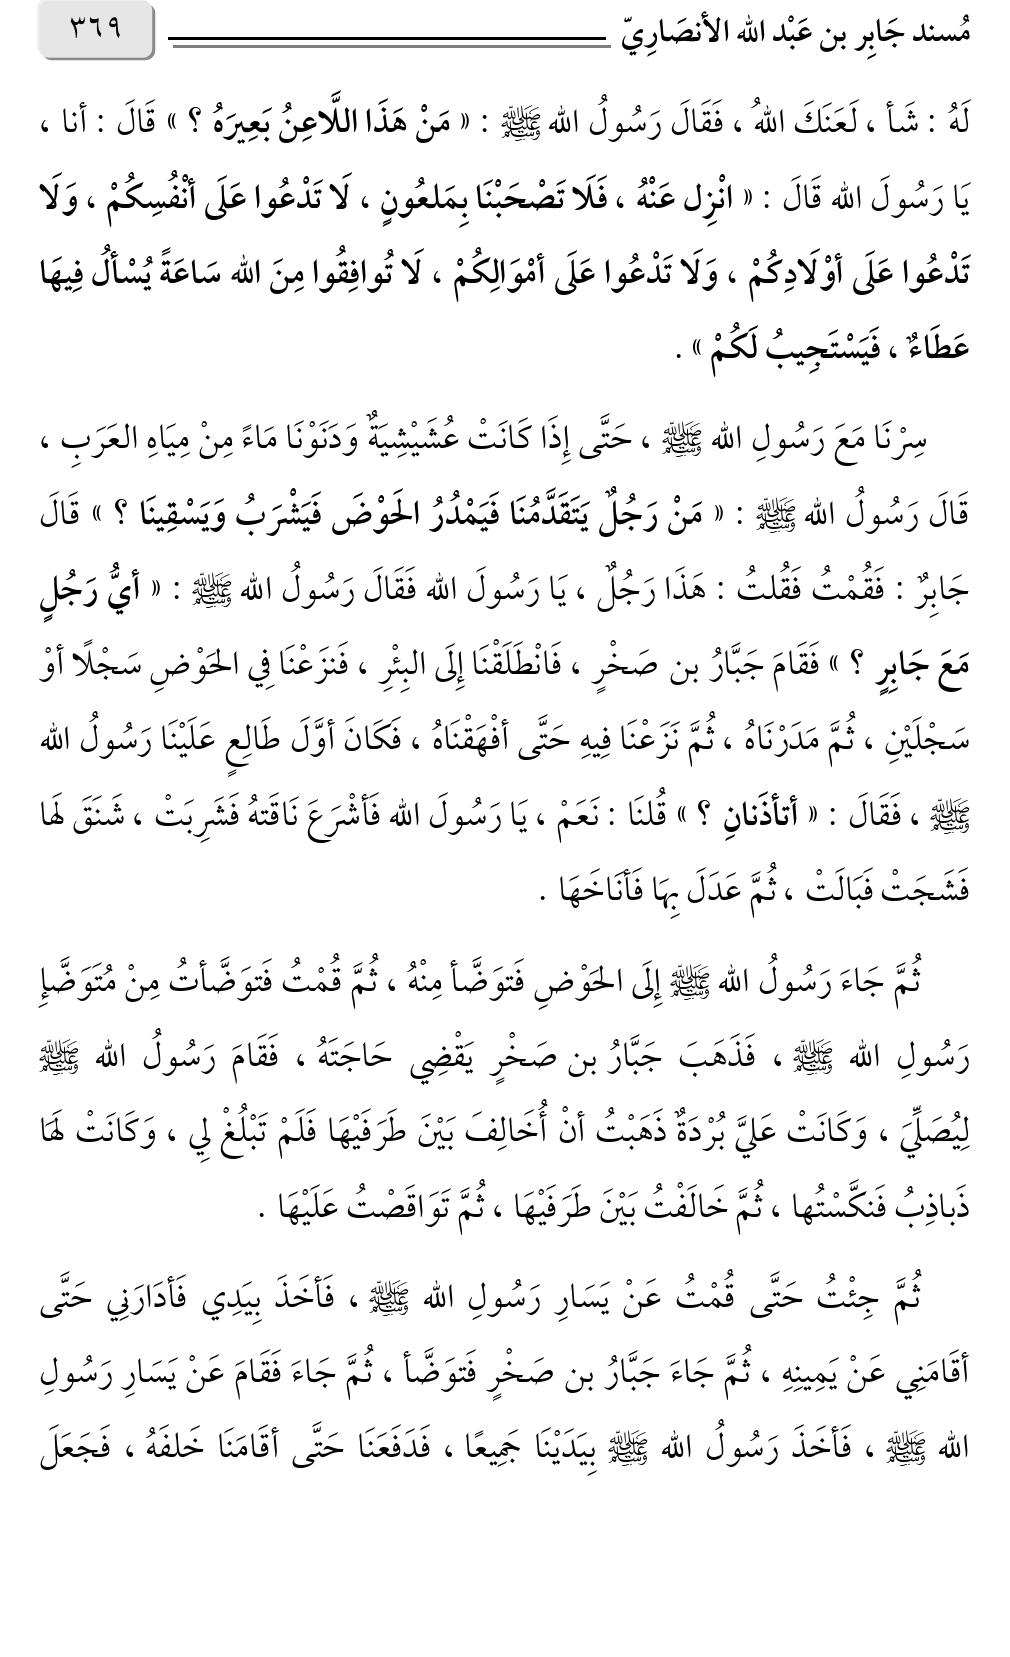 مُسند جَابِر بن عَبْد الله الأنصَارِيّ ٣٦٩
لَهُ : شَأ ، لَعَنَكَ اللهُ ، فَقَالَ رَسُولُ الله ﷺ : « مَنْ هَذَا اللَّاعِنُ بَعِيرَهُ ؟ » قَالَ : أنا ،
يَا رَسُولَ الله قَالَ : « انْزِل عَنْهُ ، فَلَا تَصْحَبْنَا بِمَلعُونٍ ، لَا تَدْعُوا عَلَى أنْفُسِكُمْ ، وَلَا
تَدْعُوا عَلَى أوْلَادِكُمْ ، وَلَا تَدْعُوا عَلَى أمْوَالِكُمْ ، لَا تُوافِقُوا مِنَ الله سَاعَةً يُسْألُ فِيهَا
عَطَاءٌ ، فَيَسْتَجِيبُ لَكُمْ » .
سِرْنَا مَعَ رَسُولِ الله ﷺ ، حَتَّى إِذَا كَانَتْ عُشَيْشِيَةٌ وَدَنَوْنَا مَاءً مِنْ مِيَاهِ العَرَبِ ،
قَالَ رَسُولُ الله ﷺ : « مَنْ رَجُلٌ يَتَقَدَّمُنَا فَيَمْدُرُ الحَوْضَ فَيَشْرَبُ وَيَسْقِينَا ؟ » قَالَ
جَابِرٌ : فَقُمْتُ فَقُلتُ : هَذَا رَجُلٌ ، يَا رَسُولَ الله فَقَالَ رَسُولُ الله ﷺ : « أيُّ رَجُلٍ
مَعَ جَابِرٍ ؟ » فَقَامَ جَبَّارُ بن صَخْرٍ ، فَانْطَلَقْنَا إِلَى البِئْرِ ، فَنزَعْنَا فِي الحَوْضِ سَجْلًا أوْ
سَجْلَيْنِ ، ثُمَّ مَدَرْنَاهُ ، ثُمَّ نَزَعْنَا فِيهِ حَتَّى أفْهَقْنَاهُ ، فَكَانَ أوَّلَ طَالِعٍ عَلَيْنَا رَسُولُ الله
ﷺ ، فَقَالَ : « أتأذَنانِ ؟ » قُلنَا : نَعَمْ ، يَا رَسُولَ الله فَأشْرَعَ نَاقَتهُ فَشَرِبَتْ ، شَنَقَ لَهَا
فَشَجَتْ فَبَالَتْ ، ثُمَّ عَدَلَ بِهَا فَأنَاخَهَا .
ثُمَّ جَاءَ رَسُولُ الله ﷺ إِلَى الحَوْضِ فَتوَضَّأ مِنْهُ ، ثُمَّ قُمْتُ فَتوَضَّأتُ مِنْ مُتَوَضَّإِ
رَسُولِ الله ﷺ ، فَذَهَبَ جَبَّارُ بن صَخْرٍ يَقْضِي حَاجَتَهُ ، فَقَامَ رَسُولُ الله ﷺ
لِيُصَلِّيَ ، وَكَانَتْ عَليَّ بُرْدَةٌ ذَهَبْتُ أنْ أُخَالِفَ بَيْنَ طَرَفَيْهَا فَلَمْ تَبْلُغْ لِي ، وَكَانَتْ لَهَا
ذَباذِبُ فَنكَّسْتُها ، ثُمَّ خَالَفْتُ بَيْنَ طَرَفَيْهَا ، ثُمَّ تَوَاقَصْتُ عَلَيْهَا .
ثُمَّ جِئْتُ حَتَّى قُمْتُ عَنْ يَسَارِ رَسُولِ الله ﷺ ، فَأخَذَ بِيَدِي فَأدَارَنِي حَتَّى
أقَامَنِي عَنْ يَمِينِهِ ، ثُمَّ جَاءَ جَبَّارُ بن صَخْرٍ فَتوَضَّأ ، ثُمَّ جَاءَ فَقَامَ عَنْ يَسَارِ رَسُولِ
الله ﷺ ، فَأخَذَ رَسُولُ الله ﷺ بِيَدَيْنَا جَمِيعًا ، فَدَفَعَنَا حَتَّى أقَامَنَا خَلفَهُ ، فَجَعَلَ